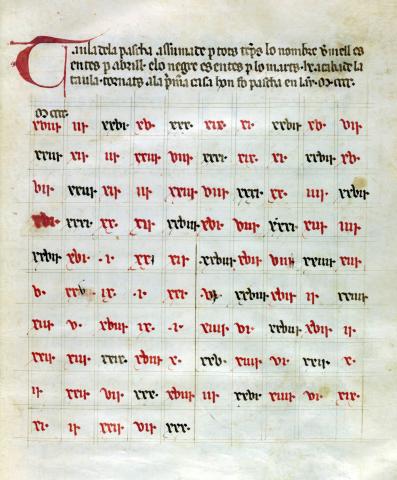 Taula dela pascha assumade p tots teps lo nombre vmell es
entes p abrill · e lo negre es entes p lo marts · he acabade la
taula · tornats ala pma casa hon fo pascha en lay · m ccc ·
m ccc ·
xviii iii xxvi · xv · xxx · xix · xi · xxvii xv · vii ·
xxiii xii · iii · xxiii viii · xxxi · xix · xi · xxvii · xv ·
vii · xxiii xii · iii xxiii viii · xxxi · xx · iiii · xxvii
xvi · xxxi · xx · xii xxviii xvi · viii · xxxi xvi iiii ·
xxvii xvi · · i · xxi xii · xxviii xvii viii xxiiii xiii
v · xxv ix · · i · xxi · vi xxviii xvii ii · xxiiii
xiii v · xviii ix · · i · xiiii vi · xxviii xvii · ii ·
xxii xiii · xxix · xviii x · xxv · xxiiii vi · xxii · x ·
ii · xxii · vii · xxx · xviii iii · xxvi · xiiii vi · xix ·
xi · ii xxii · vii · xxx ·